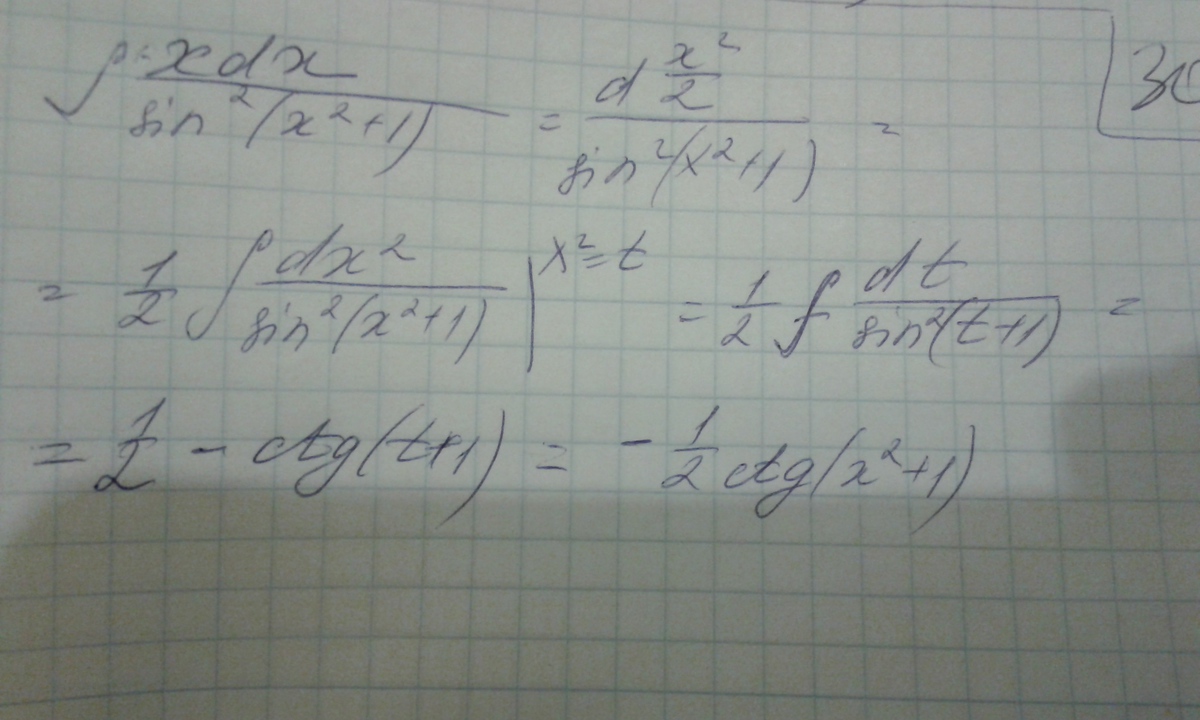 ∫ xdx / sin²(x²+1) = d x²/2 / sin²(x²+1) =
= 1/2 ∫ dx² / sin²(x²+1) | x²=t = 1/2 ∫ dt / sin²(t+1) =
= 1/2 - ctg(t+1) = - 1/2 ctg(x²+1)